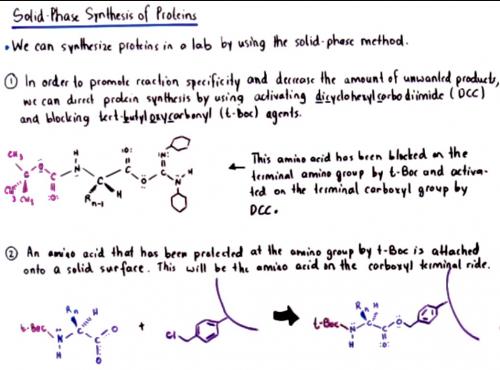 Solid-Phase Synthesis of Proteins
• We can synthesize proteins in a lab by using the solid-phase method.
① In order to promote reaction specificity and decrease the amount of unwanted product,
we can direct protein synthesis by using activating dicyclohexylcarbodiimide (DCC)
and blocking tert-butyloxycarbonyl (t-Boc) agents.
CH3 CH3 CH3 O C :O: N H Rn-1 H C :O: C O N C N H
← This amino acid has been blocked on the
terminal amino group by t-Boc and activa-
ted on the terminal carboxyl group by
DCC.
② An amino acid that has been protected at the amino group by t-Boc is attached
onto a solid surface. This will be the amino acid on the carboxyl terminal side.
t-Boc N H Rn H C C O O + Cl t-Boc N H Rn H C C :O: O